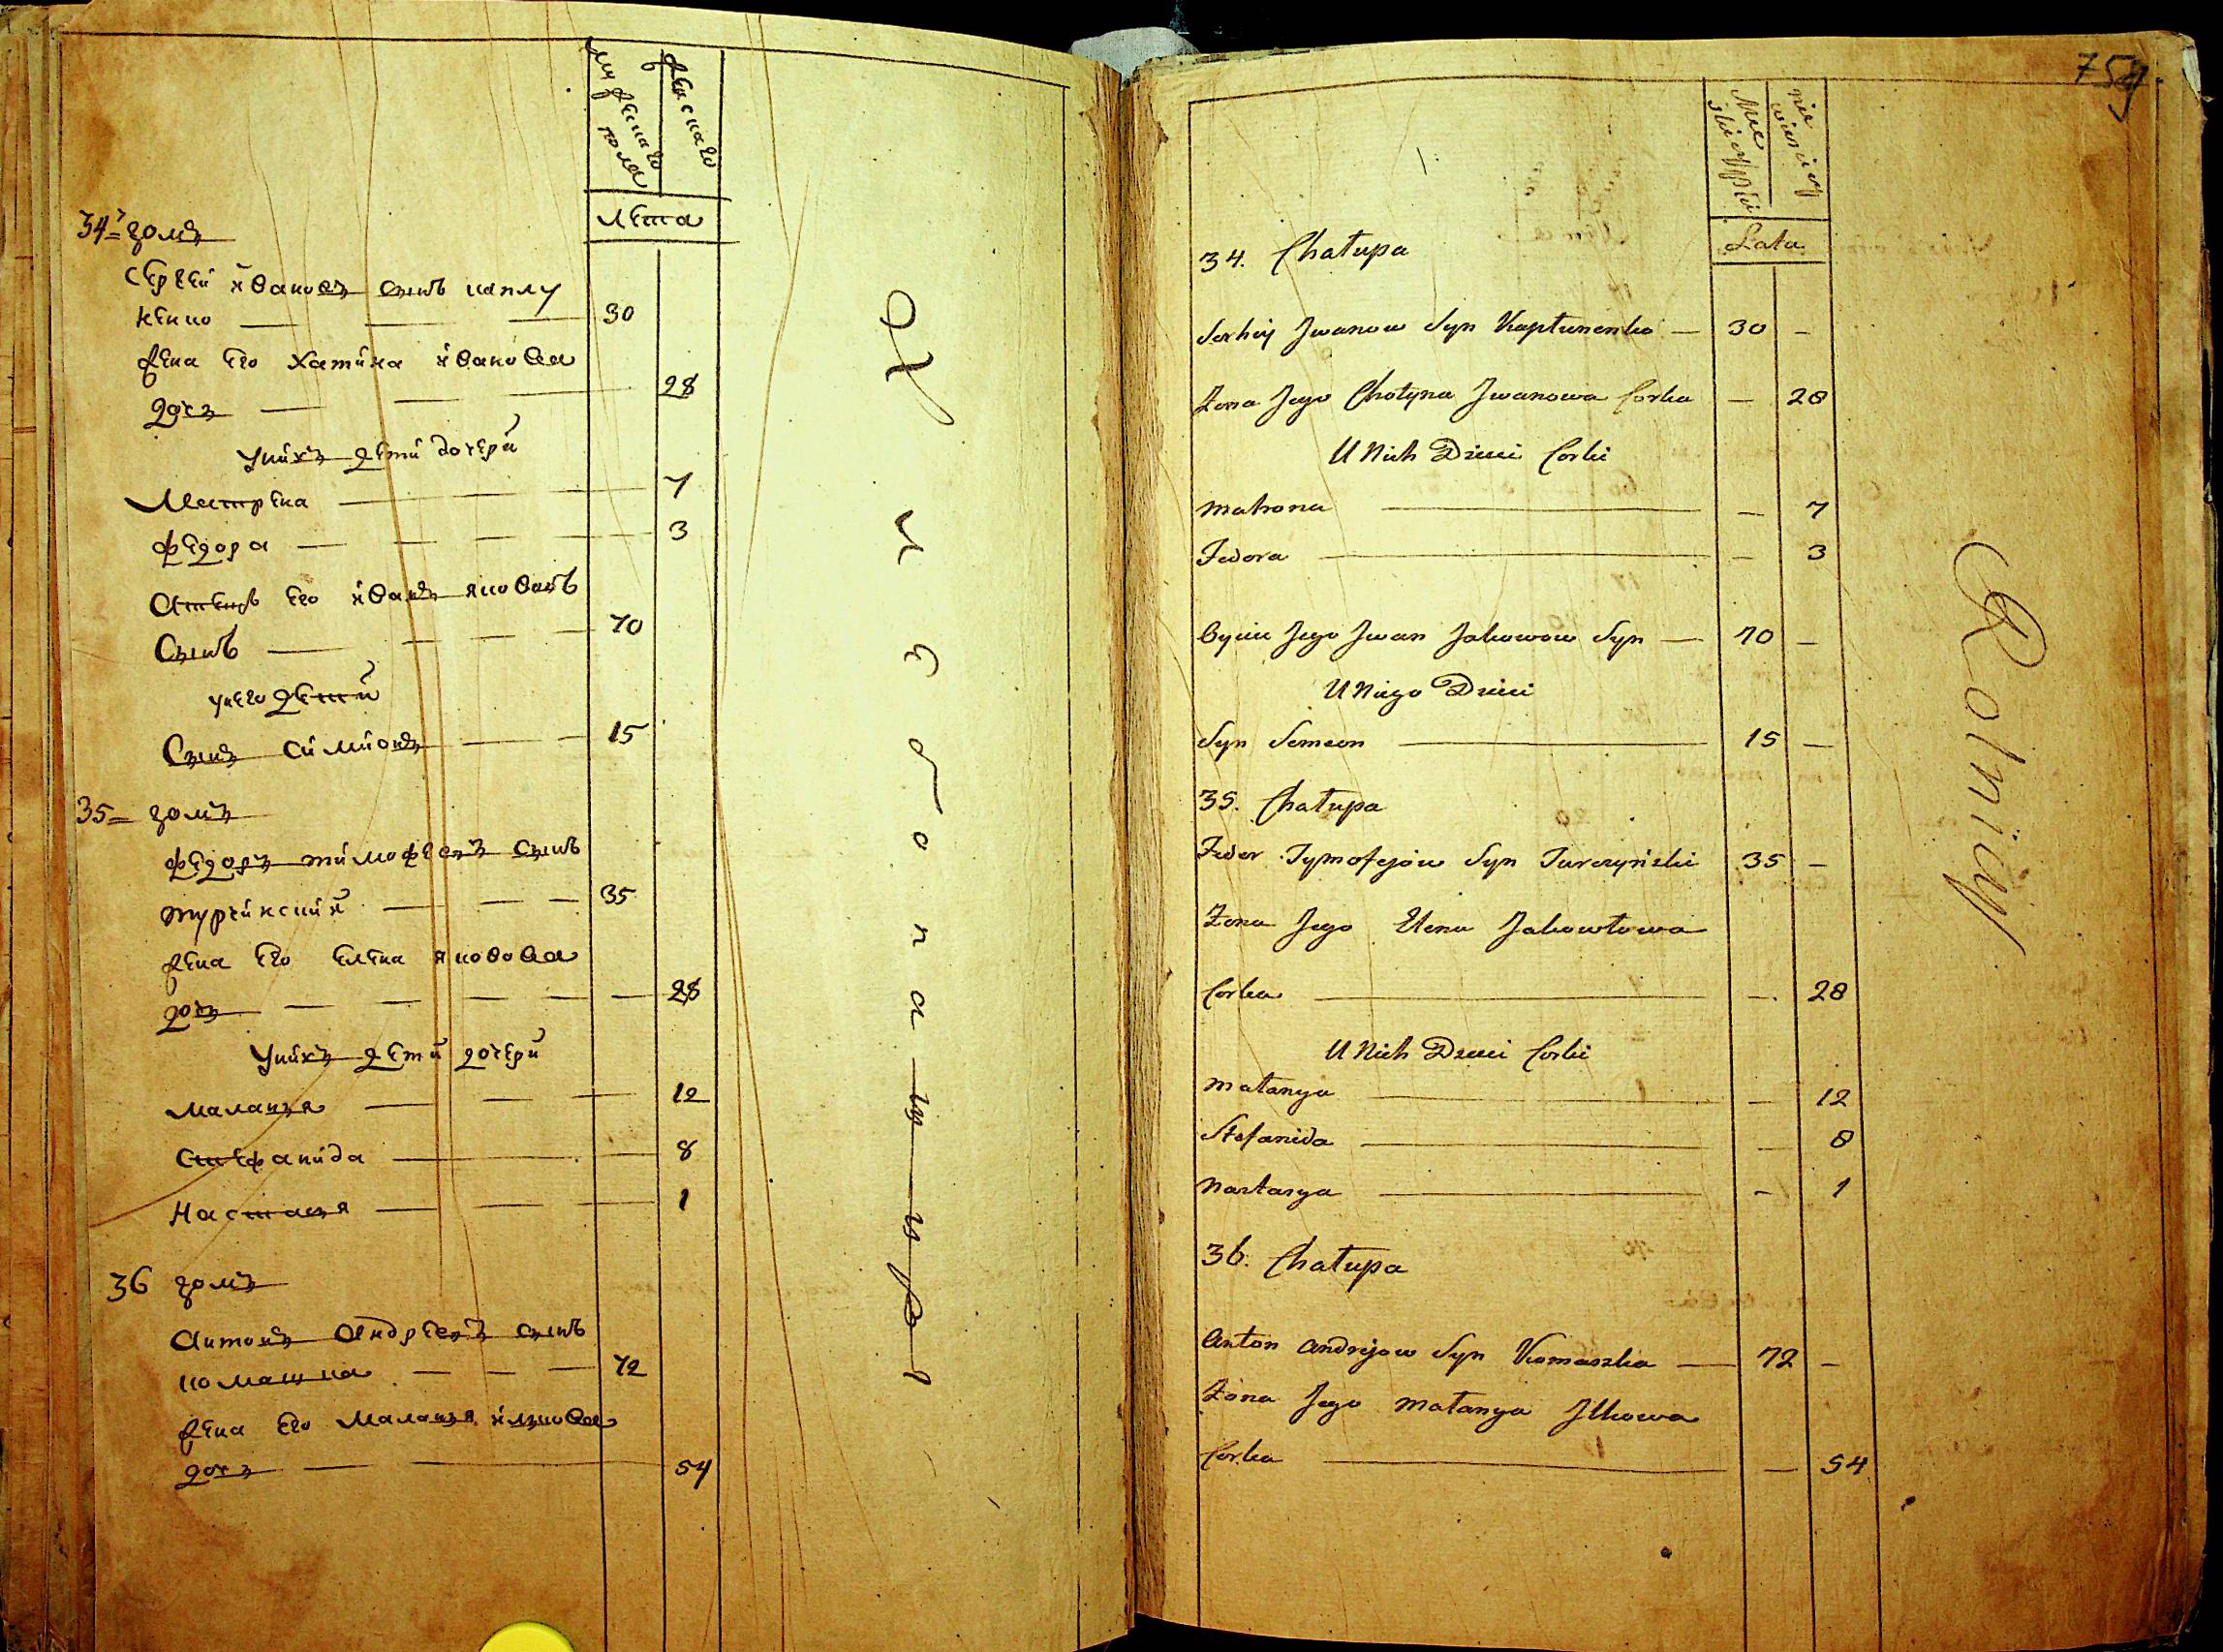 мужескаго пола
женскаго
лета
34 домъ
Сергей Ивановъ сынъ каплу
ненко — — — 30
жена его хатина иванова
дочъ — — — 28
унихъ дети дочери
Матрена — — — 7
федора — — — 3
Отецъ его иванъ яковавъ
Сынъ — — — 70
унего детей
Сынъ Симионъ — — 15
35 домъ
федоръ тимофеевъ сынъ
турчинский — — — 35
жена его елена яковова
дочъ — — — 28
унихъ дети дочери
маланъя — — — 12
Стефанида — — 8
Настасъя — — — 1
36 домъ
Антонъ Андреевъ сынъ
комашка — — — 72
жена его маланъя илкова
дочъ — — 54
759
Męzkiey płci
niewieściey
Lata
34. Chałupa
Serhiy Jwanow Syn Kapłunenko — 30 —
Zona Jego Chotyna Jwanowa Corka — 28
U Nich Dzieci Corki
Matrona — — 7
Fedora — — 3
Oyciec Jego Jwan Jakowow Syn — 70 —
U Niego Dzieci
Syn Semeon — 15 —
35. Chałupa
Fedor Tymofejow Syn Turczyński 35 —
Zona Jego Elena Jakowłowa
Corka — — 28
U Nich Dzieci Corki
Małanya — — 12
Stefanida — — 8
Nastasya — — 1
36. Chałupa
Anton Andrejow Syn Komaszka — 72 —
Zona Jego Małanya Jlkowa
Corka — — 54
Rolnicy